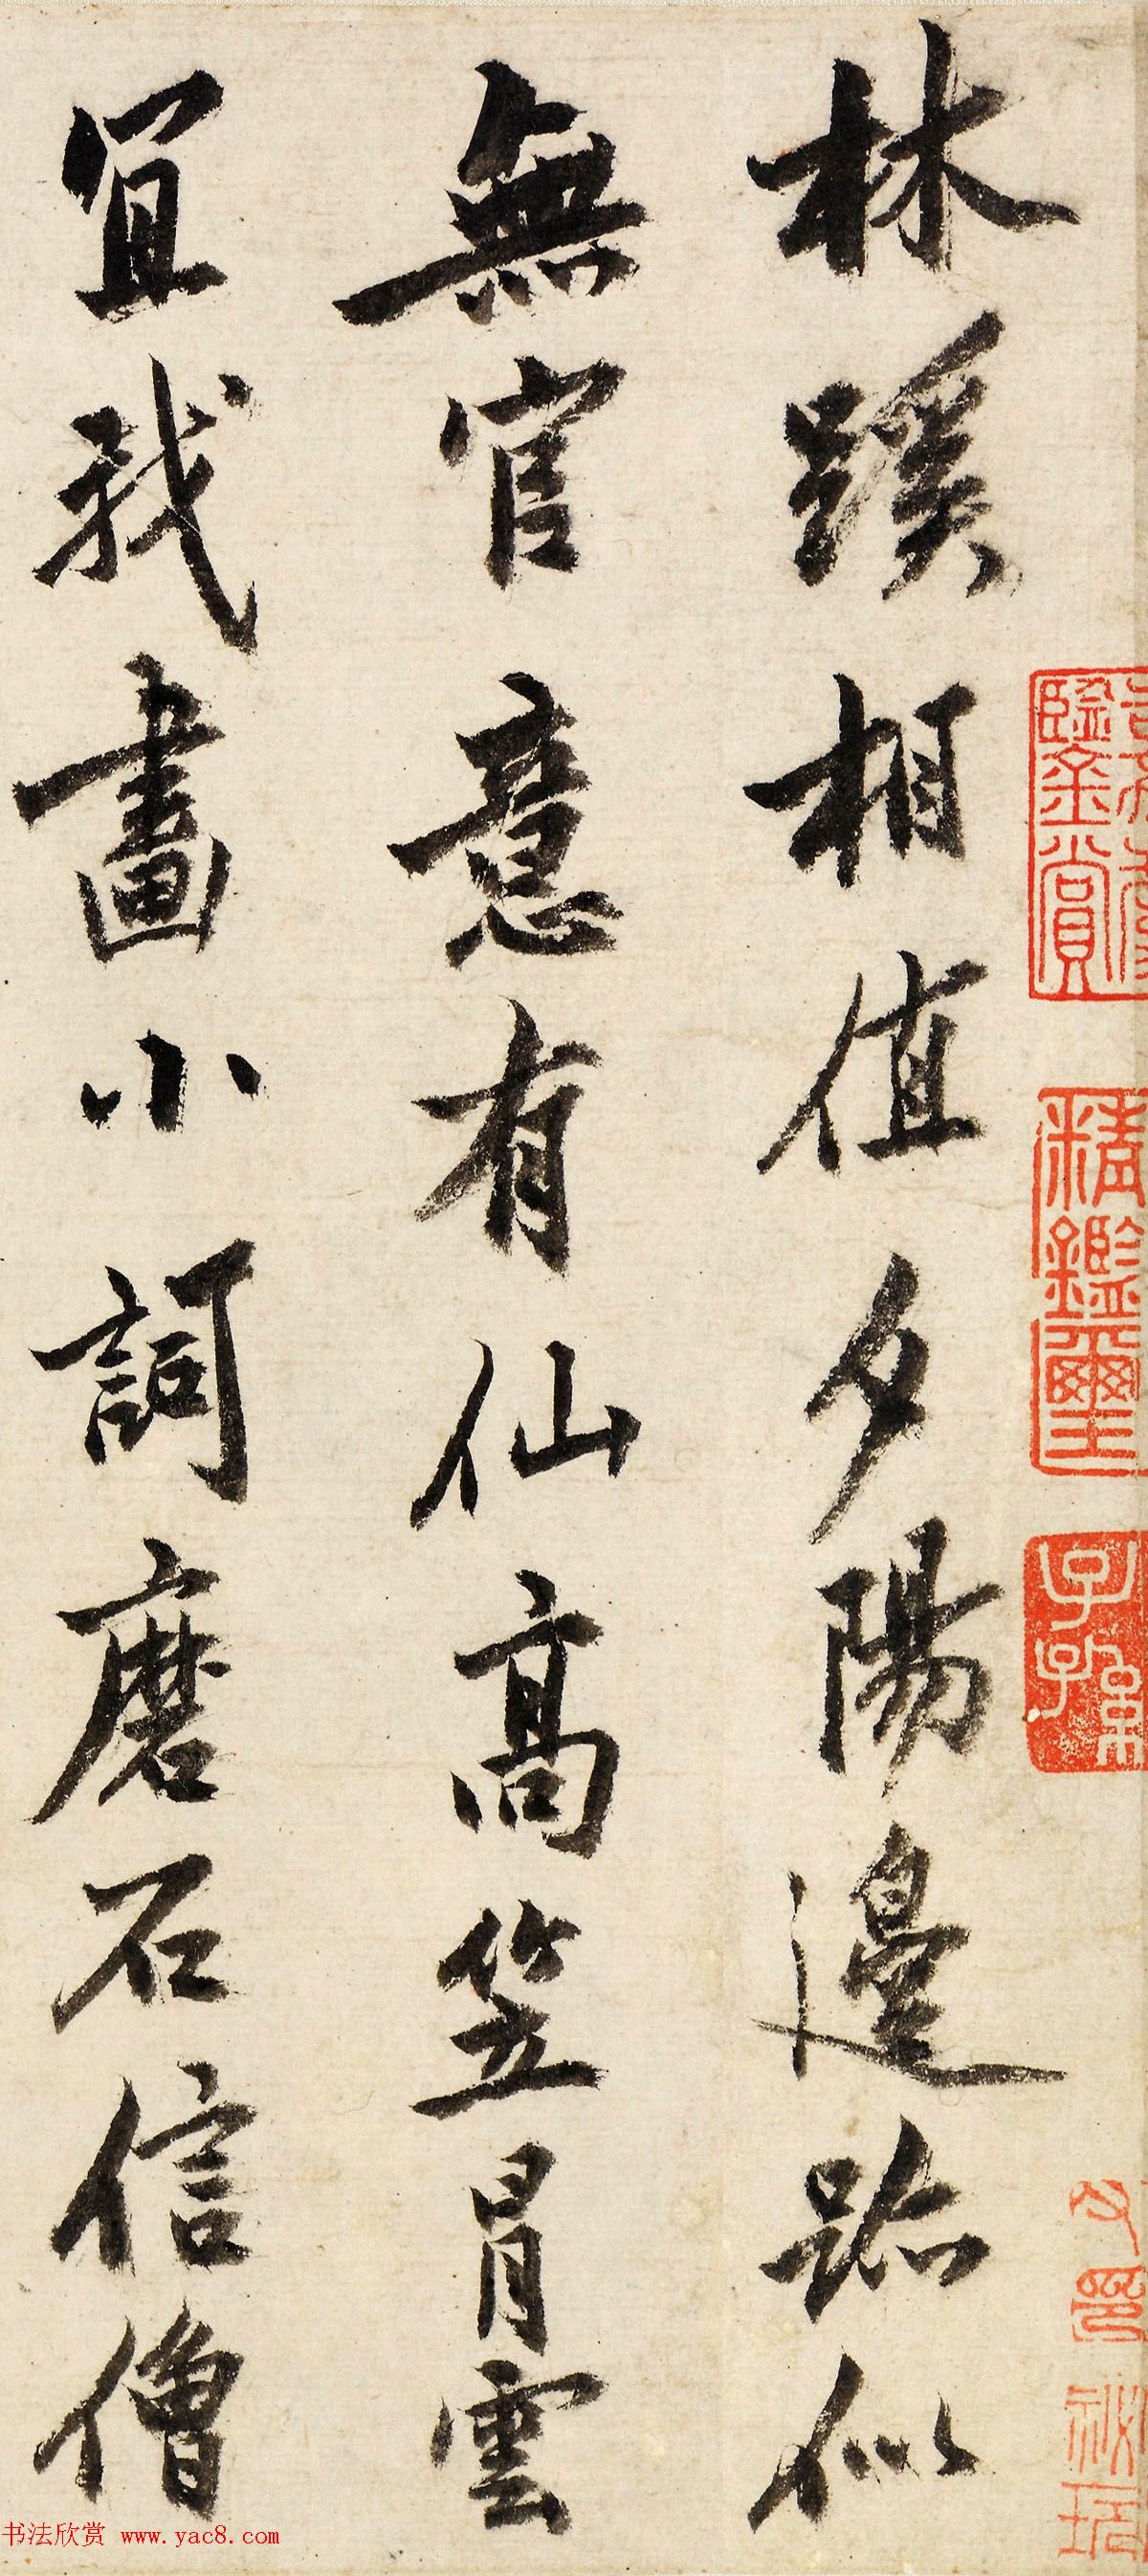 林蹊相值夕陽邊跡似
無官意有仙高笠肎雲
宜我畫小詞磨石信僧
鑒賞
精鑑璽
子孫
书法欣赏 www.yac8.com